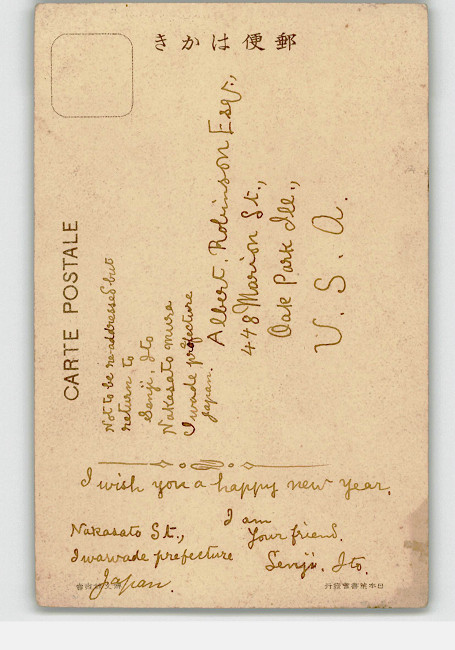 きかは便郵
CARTE POSTALE
Albert. Robinson Esq.,
448 Marion St.,
Oak Park Ill.,
U. S. A.
Not to be readdressed but
return to
Senji, Ito
Nakasato mura
Iwade prefecture
Japan.
I wish you a happy new year.
I am
Your friend.
Senji. Ito.
Nakasato St.,
Iwawade prefecture
Japan.